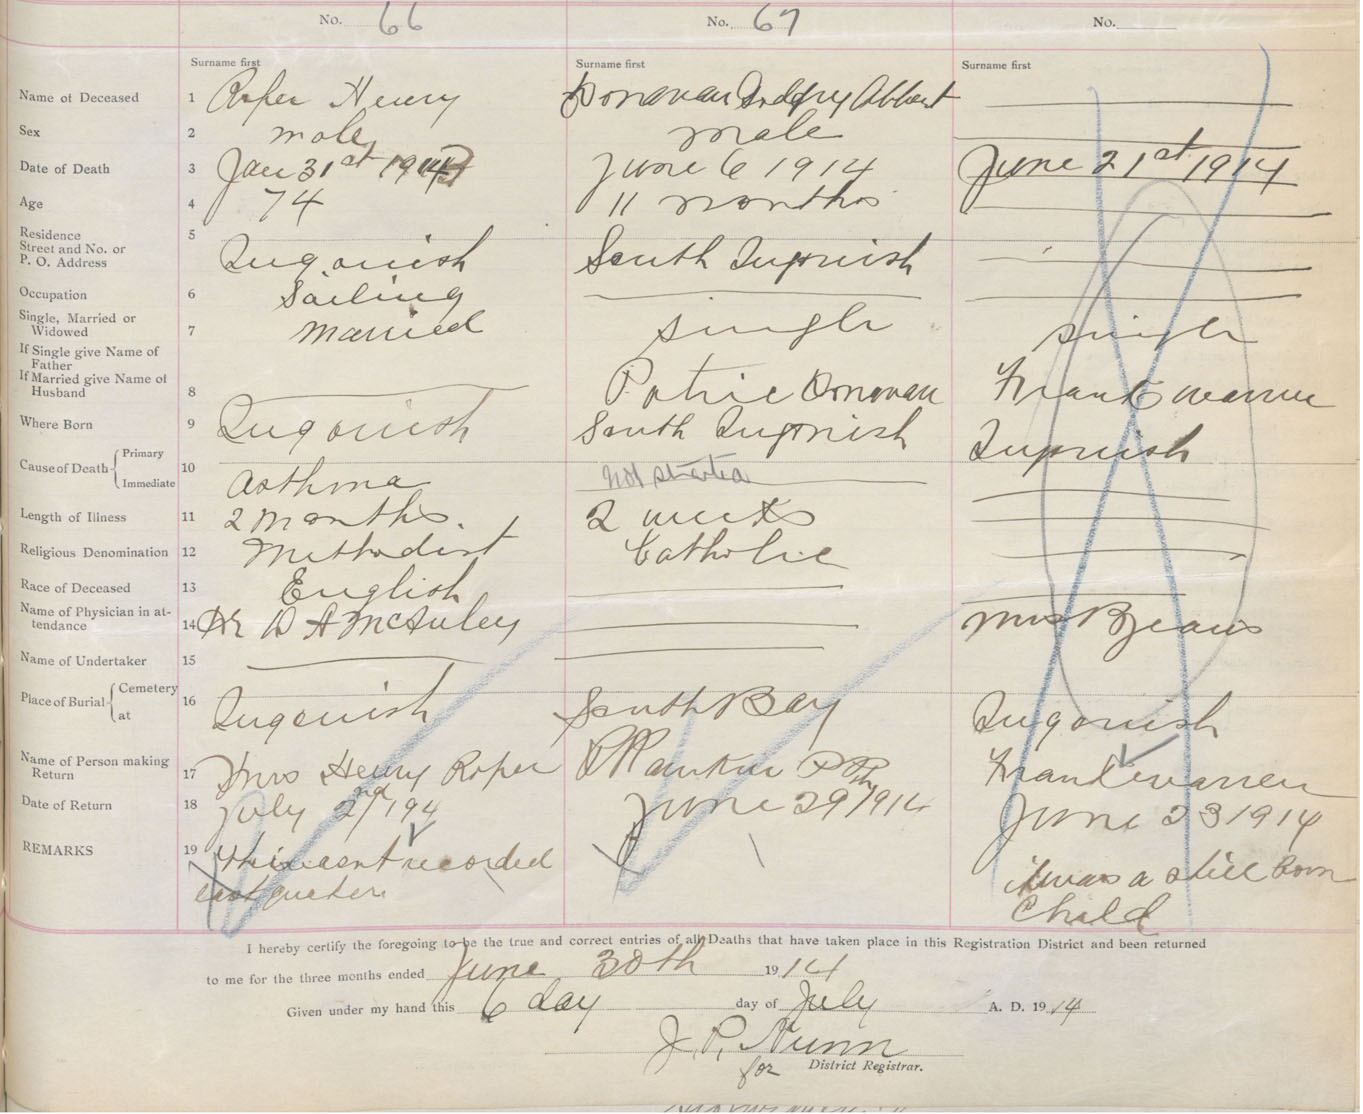 No. 66 No. 67 No.
Surname first Surname first Surname first
Name of Deceased 1 Roper Henry Donovan Abbert
Sex 2 male male
Date of Death 3 Jan 31st June 6 1914 June 21st 1914
Age 4 74 11 months
Residence 5
Street and No. or
P. O. Address Ingonish South Ingonish
Occupation 6 Sailing
Single, Married or
Widowed 7 Married single single
If Single give Name of
Father
If Married give Name of
Husband 8 Patric Donovan Frank warren
Where Born 9 Ingonish South Ingonish Ingonish
Cause of Death { Primary
Immediate 10 Asthma Not stated
Length of Illness 11 2 months. 2 weeks
Religious Denomination 12 Methodist Catholic
Race of Deceased 13 English
Name of Physician in at-
tendance 14 Dr D A McAuley Mrs
Name of Undertaker 15
Place of Burial { Cemetery
at 16 Ingonish South Bay Ingonish
Name of Person making
Return 17 Mrs Henry Roper Rankin PP Frank warren
Date of Return 18 July 2nd 194 June 29 1914 June 23 1914
REMARKS 19 this wasent recorded it was a still born
last quater Child
I hereby certify the foregoing to be the true and correct entries of all Deaths that have taken place in this Registration District and been returned
to me for the three months ended June 30th 1914
Given under my hand this 6 day day of July A. D. 1914
J. P. Nunn
for District Registrar.